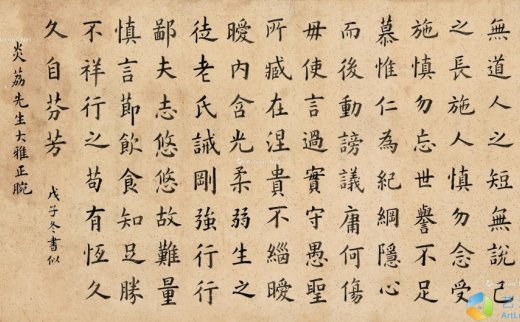 無道人之短無說己
之長施人慎勿念受
施慎勿忘世譽不足
慕惟仁為紀綱隱心
而後動謗議庸何傷
毋使言過實守愚聖
所臧在涅貴不緇曖
曖內含光柔弱生之
徒老氏誡剛強行行
鄙夫志悠悠故難量
慎言節飲食知足勝
不祥行之苟有恆久
久自芬芳
戊子冬書似
炎荔先生大雅正腕